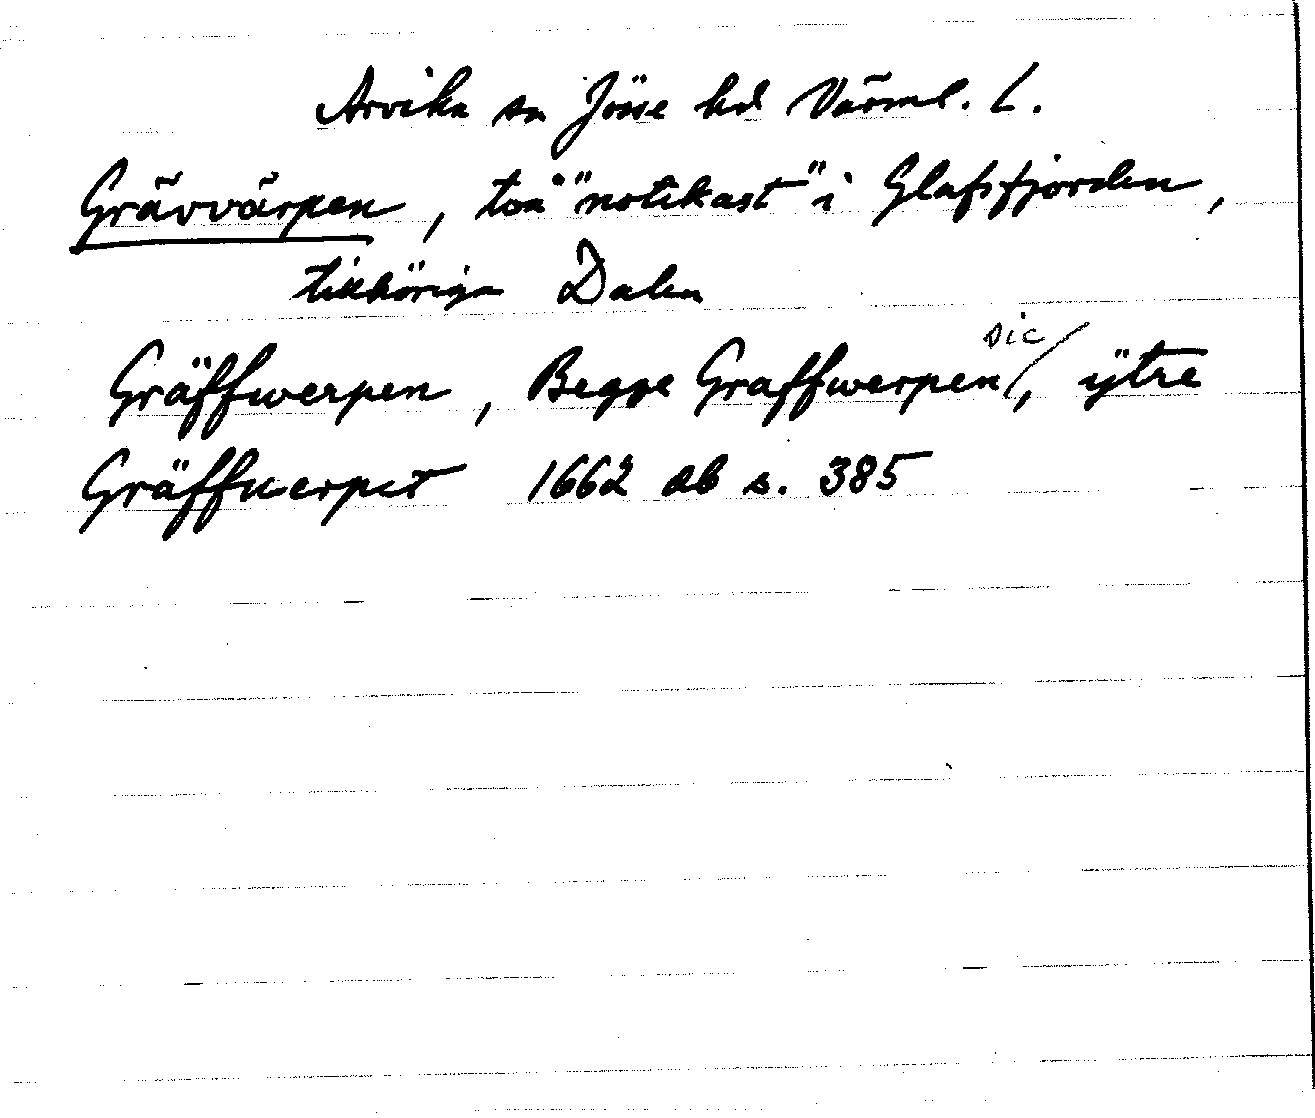 Arvika sn Jösse hd Värml. L.
Grävvärpen, två "notekast" i Glafsfjorden,
tillhöriga Dalen
Gräffwerpen, Begge Graffwerpen sic/, ÿtre
Gräffwerpet 1662 db s. 385